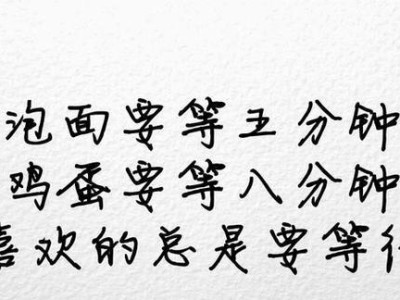 泡面要等五分钟
鸡蛋要等八分钟
喜欢的总是要等待